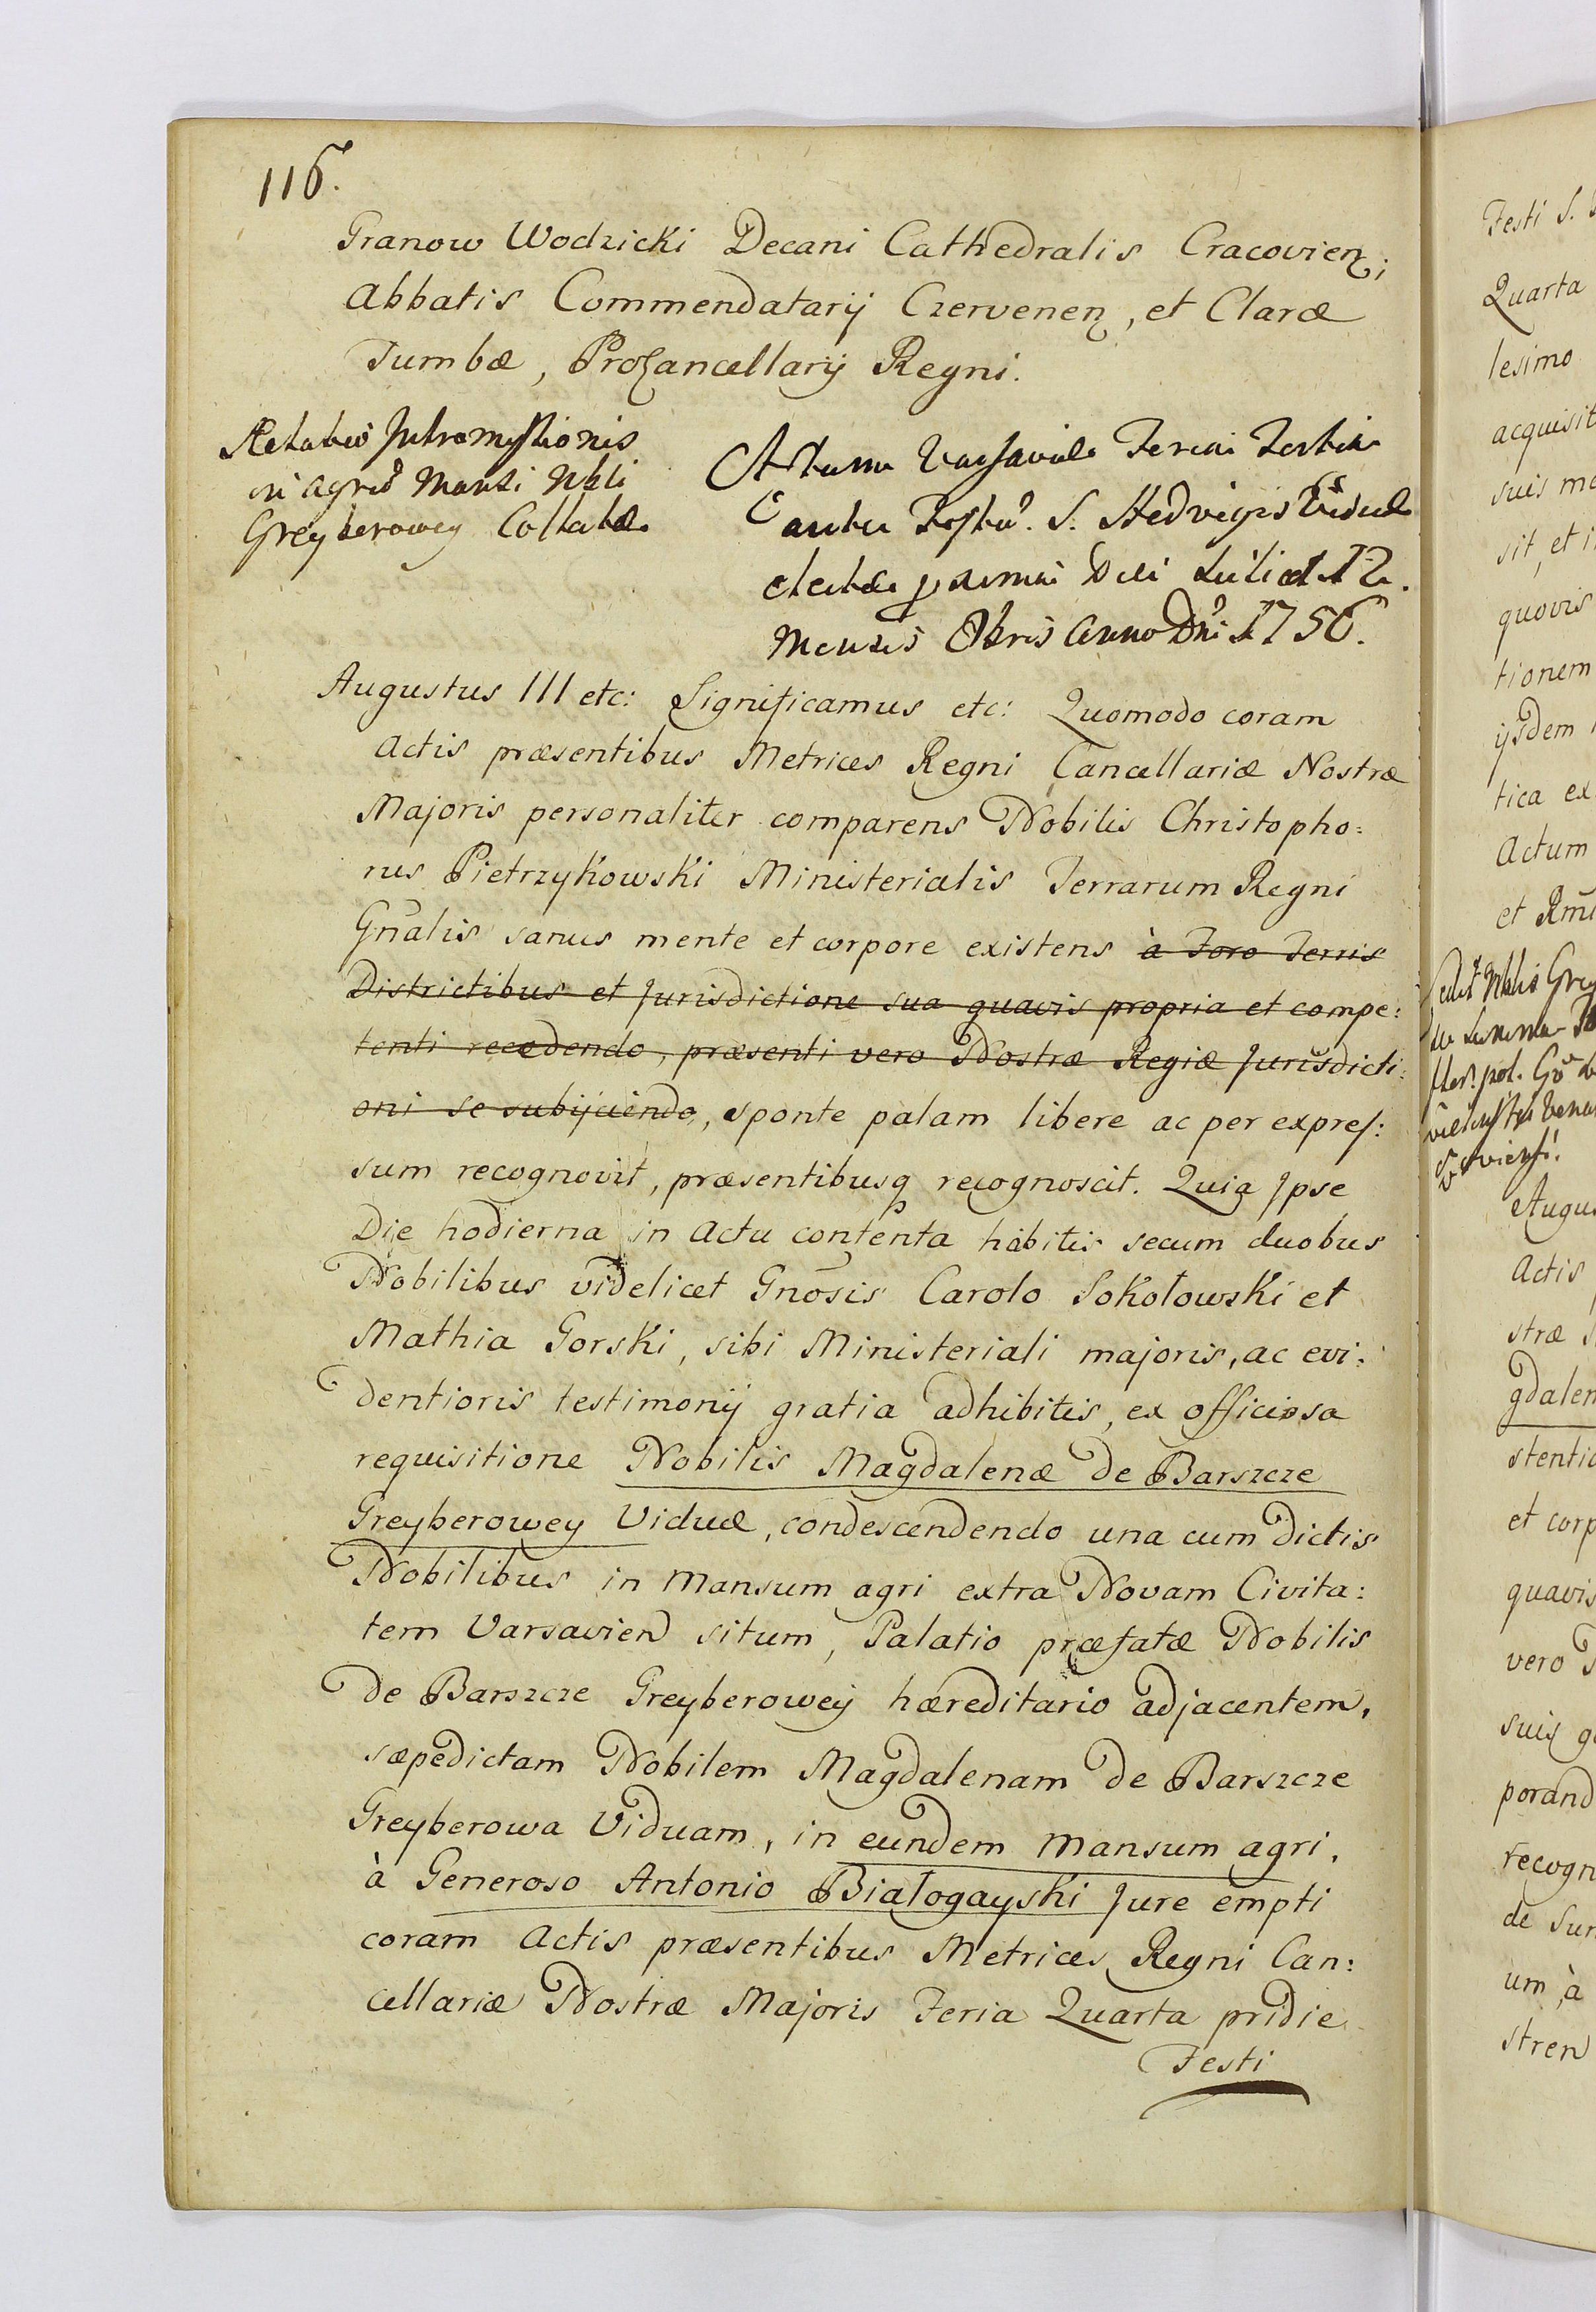 116.
Granow Wodzicki Decani Cathedralis Cracovien;
Abbatis Commendatarij Czervenen, et Claræ
Tumbæ, Procancellarij Regni.
Relatio Intromissionis
in agrū Mansi Nbli
Greyberowey Collatæ
Actum Varsaviæ Feria Tertia
ante Festū S. Hedvigis Viduæ
electæ proxima Die scilicet 12
Mensis 8bris Anno Dni 1756.
Augustus III etc: Significamus etc: Quomodo coram
Actis præsentibus Metrices Regni Cancellariæ Nostræ
Majoris personaliter comparens Nobilis Christopho:
rus Pietrzykowski Ministerialis Terrarum Regni
Gnalis sanus mente et corpore existens à Foro Terris
Districtibus et Jurisdictione sua quavis propria et compe:
tenti recedendo, præsenti vero Nostræ Regiæ Jurisdicti:
oni se subijciendo, sponte palam libere ac per expres:
sum recognovit, præsentibusq recognoscit. Quia Ipse
Die hodierna in Actu contenta habitis secum duobus
Nobilibus videlicet Gnosis Carolo Sokołowski et
Mathia Gorski, sibi Ministeriali majoris, ac evi:
dentioris testimonij gratia adhibitis, ex officiosa
requisitione Nobilis Magdalenæ de Barszcze
Greyberowey Viduæ, condescendendo una cum dictis
Nobilibus in Mansum agri extra Novam Civita:
tem Varsavien situm, Palatio præfatæ Nobilis
de Barszcze Greyberowey hæreditario adjacentem,
sæpedictam Nobilem Magdalenam de Barszcze
Greyberowa Viduam, in eundem Mansum agri,
à Generoso Antonio Białogayski Jure empti
coram Actis præsentibus Metrices Regni Can:
cellariæ Nostræ Majoris Feria Quarta pridie
Festi
Festi S.
Quarta
lesimo
acquisit
suis
sit, et
quovis
tionem
ijsdem
tica ex
Actum
et Rmi
Augus
Actis
stræ
gdalen
stentia
et corp
quavis
vero
suis
porand
recogn
de Sum
um, à
stren